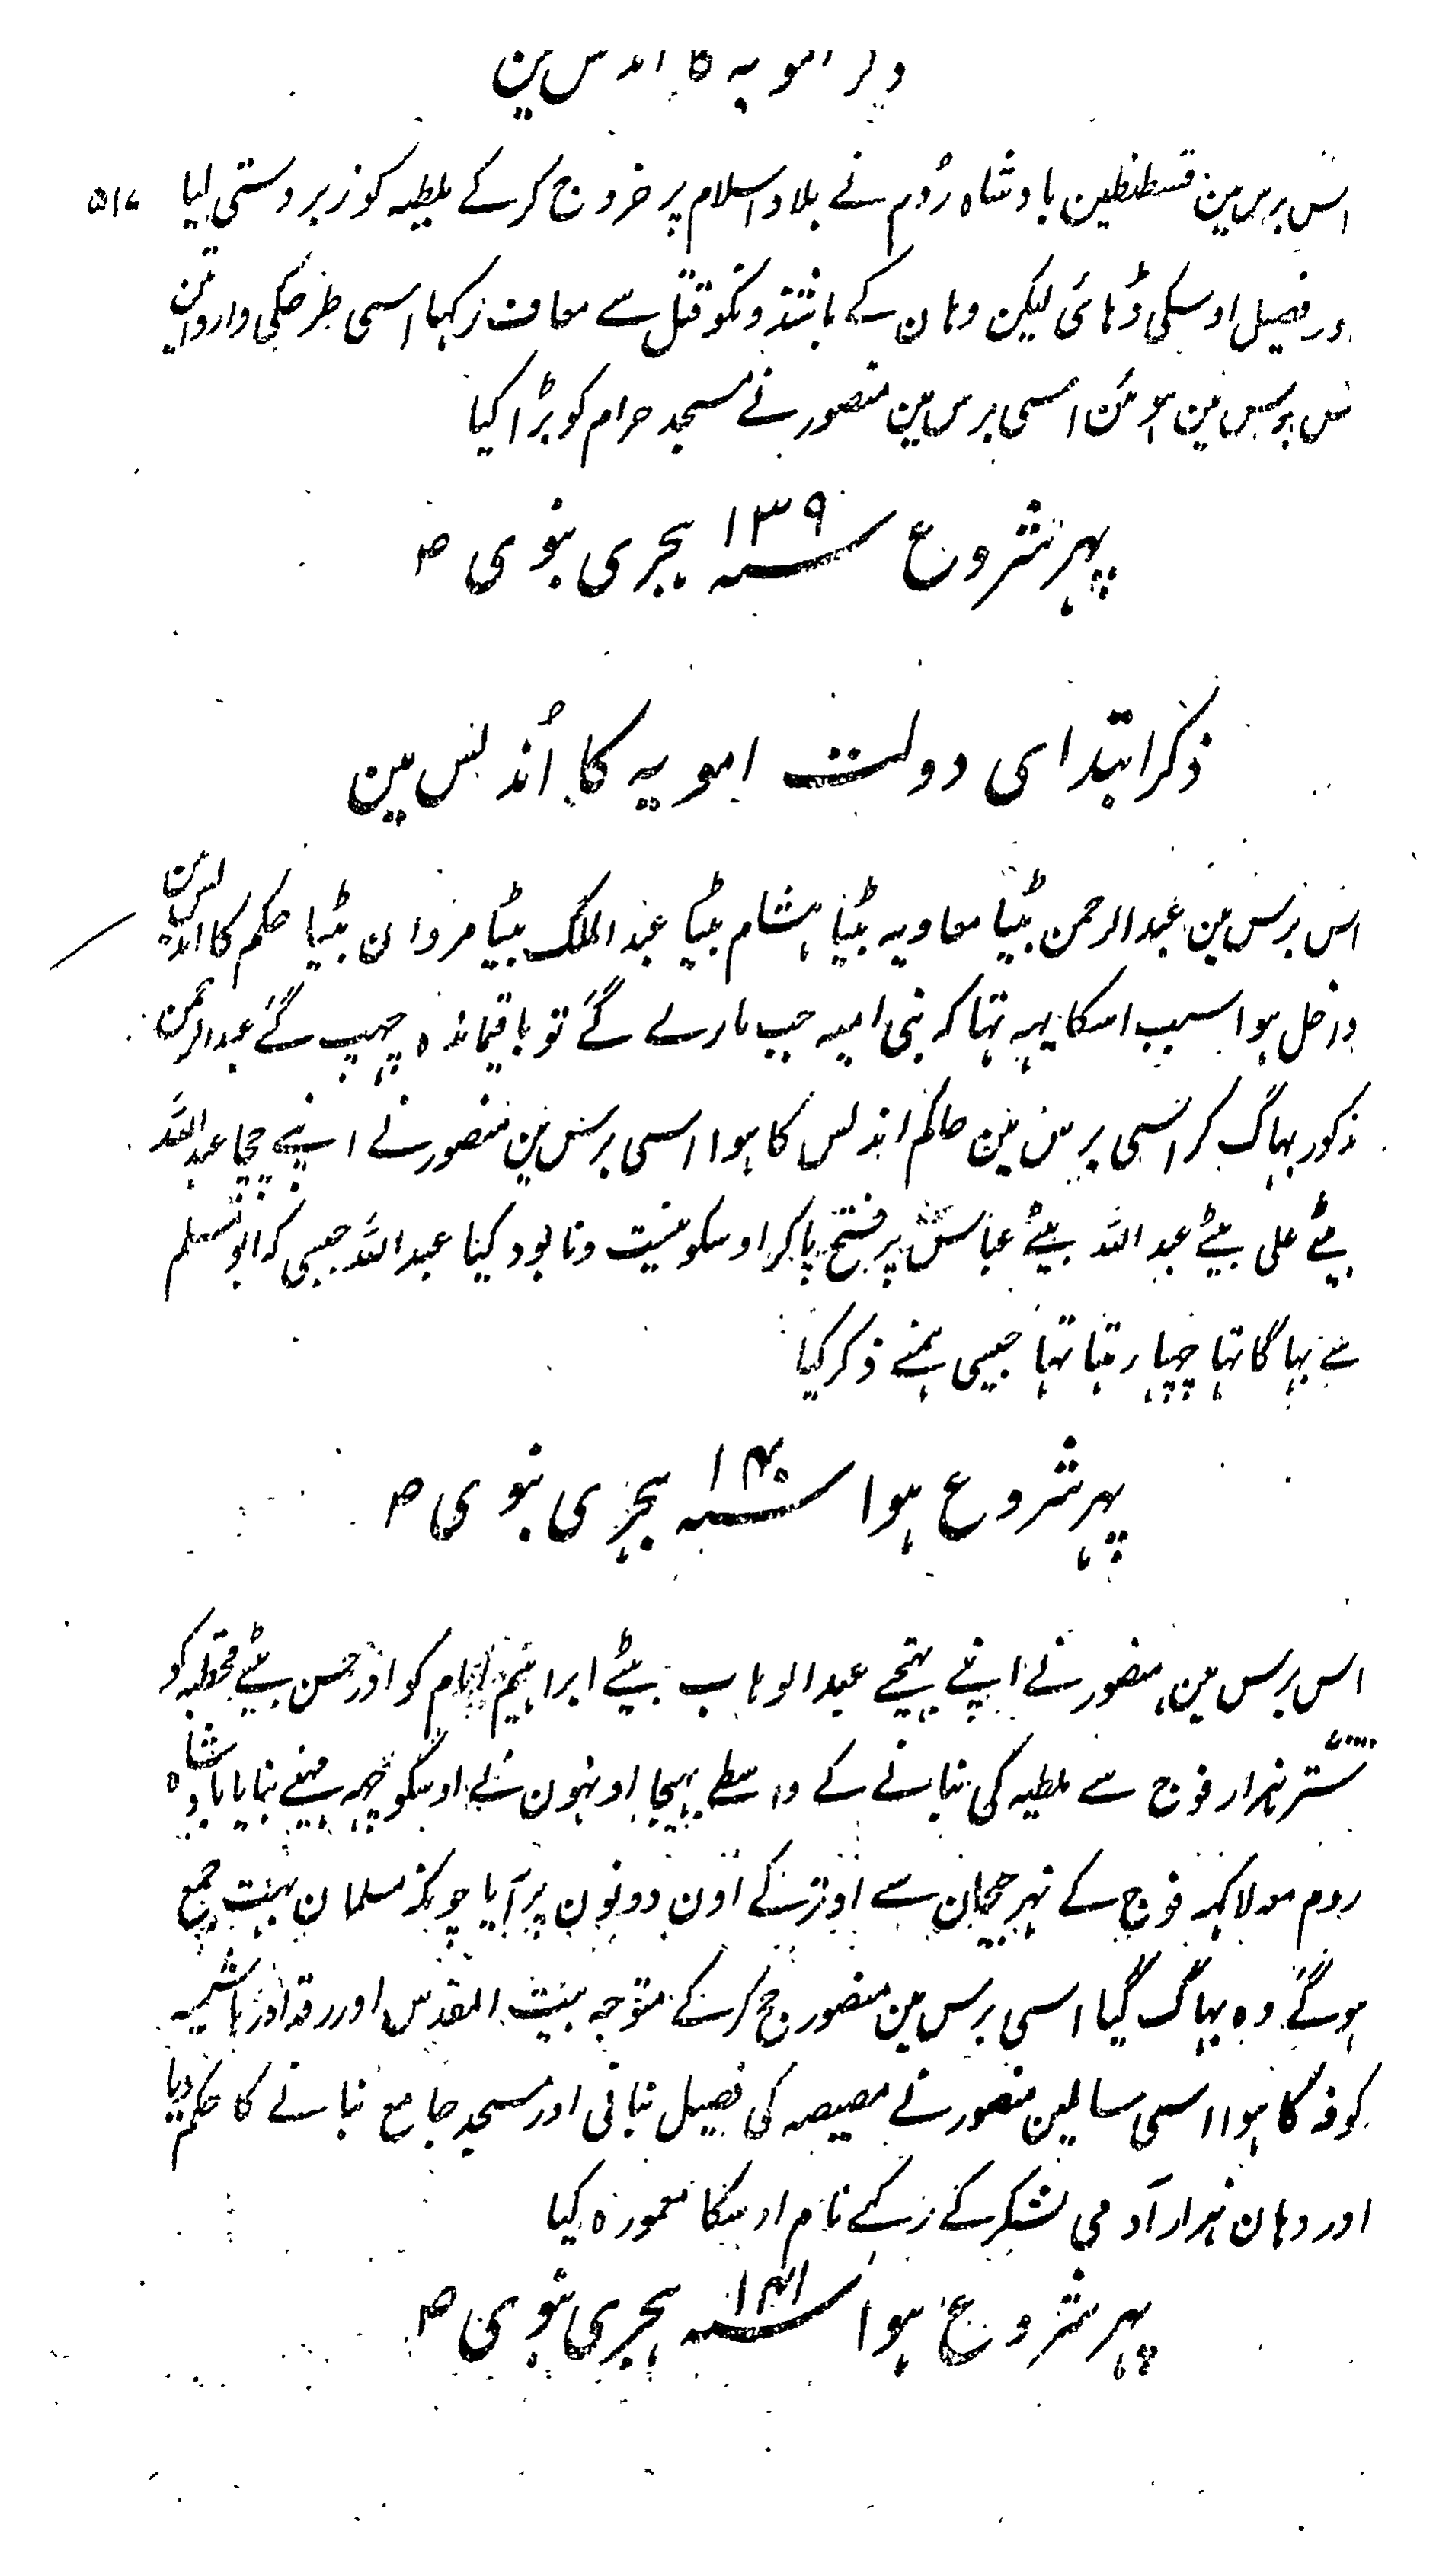 ذکر امویہ کا اندلس مین
اس برس مین قسطنطین بادشاہ رُوم نے بلاد اسلام پر خروج کر کے ملطیہ کو زبردستی لیا
اور فصیل اوسکی ڈہائی لیکن وہان کے باشندونکو قتل سے معاف رکہا اسی طرحکی وارداتین
اس برس مین ہوئن اسی برس مین منصور نے مسجد حرام کو بڑا کیا
پہر شروع سنہ ۱۳۹ ہجری نبوی ص
ذکر ابتدای دولت امویہ کا اُندلس مین
اس برس مین عبد الرحمن بیٹا معاویہ بیٹا ہشام بیٹا عبد الملک بیٹا مروان بیٹا حکم کا اندلس مین
داخل ہوا سبب اسکا یہہ تہا کہ بنی امیہ جب مارے گئے تو باقیماندہ چہپ گئے عبد الرحمن
مذکور بہاگ کر اسی برس مین حاکم اندلس کا ہوا اسی برس مین منصور نے اپنے چچا عبد اللہ
بیٹے علی بیٹے عبد اللہ بیٹے عباس پر فتح پا کر اوسکو نیست و نابود کیا عبد اللہ جیسی کہ ابو مسلم
سے بہاگا تہا چہپا رہتا تہا جیسی ہمنے ذکر کیا
پہر شروع ہوا سنہ ۱۴۰ ہجری نبوی ص
اس برس مین منصور نے اپنے بہتیجے عبد الوہاب بیٹے ابراہیم امام کو اور حسن بیٹے قحطبہ کو
ستّر ہزار فوج سے ملطیہ کی بنانے کے واسطے بہیجا اونہون نے اوسکو چہہ مہینے بنایا بادشاہ
روم مع لاکہہ فوج کے نہر جیحان سے اوتر کے اون دونون پر آیا چونکہ مسلمان بہت جمع
ہو گئے وہ بہاگ گیا اسی برس مین منصور حج کر کے متوجہ بیت المقدس اور رقہ اور ہاشمیہ
کوفہ کا ہوا اسی سالمین منصور نے مصیصہ کی فصیل بنائی اور مسجد جامع بنانے کا حکم دیا
اور وہان ہزار آدمی لشکر کے رکہے نام اوسکا معمورہ کیا
پہر شروع ہوا سنہ ۱۴۱ ہجری نبوی ص